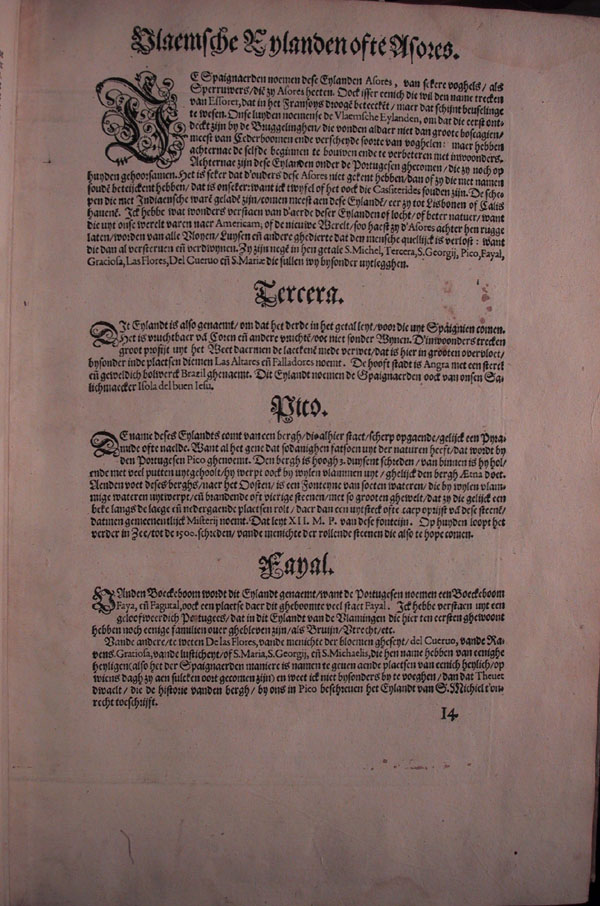 Vlaemsche Eylanden ofte Asores.
DE Spaignaerden noemen dese Eylanden Asores, van sekere voghels/ als
Sperruwers/ die zy Asores heeten. Oock isser eenich die wil den name trecken
van Essorer, dat in het Fransoys drooge beteeckēt/ maer dat schijnt beuselinge
te wesen. Onse luyden noemense de Vlaemsche Eylanden, om dat die eerst ont-
deckt zijn by de Bruggelinghen/ die vonden aldaer niet dan groote boscagien/
meest van Cederboomen ende verscheyde soorte van voghelen: maer hebben
achternae de selfde beginnen te bouwen ende te verbeteren met inwoonders.
Achternae zijn dese Eylanden onder de Portugesen ghecomen/ die zy noch op
huyden gehoorsamen. Het is seker dat d'ouders dese Asores niet gekent hebben/ dan of zy die met namen
soudē beteijckent hebben/ dat is onseker: want ick twyfel of het oock die Cassiterides souden zijn. De sche-
pen die met Indiaensche warē geladē zijn/ comen meest aen dese Eylandē/ eer zy tot Lisbonen of Calis
havenē. Ick hebbe wat wonders verstaen van d'aerde deser Eylanden of locht/ of beter natuer/ want
die uyt onse werelt varen naer Americam, of de nieuwe Werelt/ soo haest zy d'Asores achter hen rugge
laten/ worden van alle Vloyen/ Luysen eñ andere ghedierte dat den mensche quellijck is verlost: want
die dan al versterven eñ verdwynen. Zy zijn negē in hen getale S. Michel, Tercera, S. Georgij, Pico, Fayal,
Graciosa, Las Flores, Del Cueruo eñ S. Mariæ die sullen wy bysonder uytlegghen.
Tercera.
DIt Eylandt is also genaemt/ om dat het derde in het getal leyt/ voor die uyt Spaignien comen.
Het is vruchtbaer vā Coren eñ andere vruchtē/ ooc niet sonder Wynen. D'inwoonders trecken
groot profijt uyt het Weet daermen de laeckenē mede verwet/ dat is hier in grooten overvloet/
bysonder inde plaetsen diemen Las Altares eñ Falladores noemt. De hooft stadt is Angra met een sterck
eñ geweldich bolwerck Brazil ghenaemt. Dit Eylandt noemen de Spaignaerden oock van onsen Sa-
lichmaecker Isola del buen Iesu.
Pico.
DE name deses Eylandts comt van een bergh/ die alhier staet/ scherp opgaende/ gelijck een Pyra-
mide ofte naelde. Want al het gene dat sodanighen fatsoen uyt der naturen heeft/ dat wordt by
den Portugesen Pico ghenoemt. Den bergh is hoogh 3. duysent schreden/ van binnen is hy hol/
ende met veel putten uytgeholt/ hy werpt oock by wylen vlammen uyt/ ghelijck den bergh Etna doet.
Aenden voet deses berghs/ naer het Oosten/ is een Fonteyne van soeten wateren/ die by wylen vlam-
mige wateren uytwerpt/ eñ brandende oft vierige steenen/ met so grooten ghewelt/ dat zy die gelijck een
beke langs de laege eñ nedergaende plaetsen rolt/ daer dan een uytsteck ofte caep oprijst vā dese steenē/
datmen gemeenentlijck Misterij noemt. Dat leyt XII. M. P. van dese fonteijn. Op huyden loopt het
verder in Zee/ tot de 1500. schreden/ vande menichte der rollende steenen die also te hope comen.
Fayal.
VAnden Boeckeboom wordt dit Eylandt genaemt/ want de Portugesen noemen een Boeckeboom
Faya, eñ Fagutal, oock een plaetse daer dit gheboomte veel staet Fayal. Ick hebbe verstaen uyt een
geloofweerdich Portugees/ dat in dit Eylandt van de Vlamingen die hier ten eersten ghewoont
hebben noch eenige familien over ghebleven zijn/ als Bruijn/ Vtrecht/ etc.
Vande andere/ te weten De las Flores, vande menichte der bloemen gheseyt/ del Cueruo, vande Ra-
vens. Gratiosa, vande lusticheyt/ of S. Maria, S. Georgij, eñ S. Michaelis, die hen name hebben van eenighe
heyligen (also het der Spaignaerden maniere is namen te geven aende plaetsen van eenich heylich/ op
wiens dagh zy aen sulcken oort gecomen zijn) en weet ick niet bysonders by te voeghen/ dan dat Thevet
dwaelt/ die de historie vanden bergh/ by ons in Pico beschreven het Eylandt van S. Michiel t'on-
recht toeschrijft.
14.